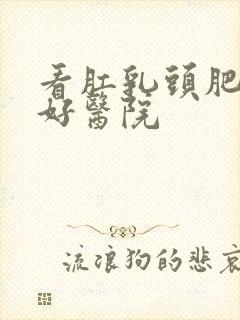 看肛乳頭肥
好醫院
流浪狗的悲哀